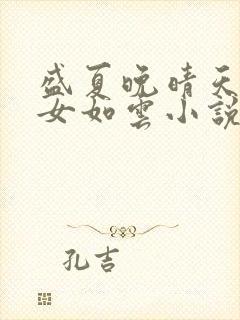 盛夏晚晴天
女如雲小說
孔吉